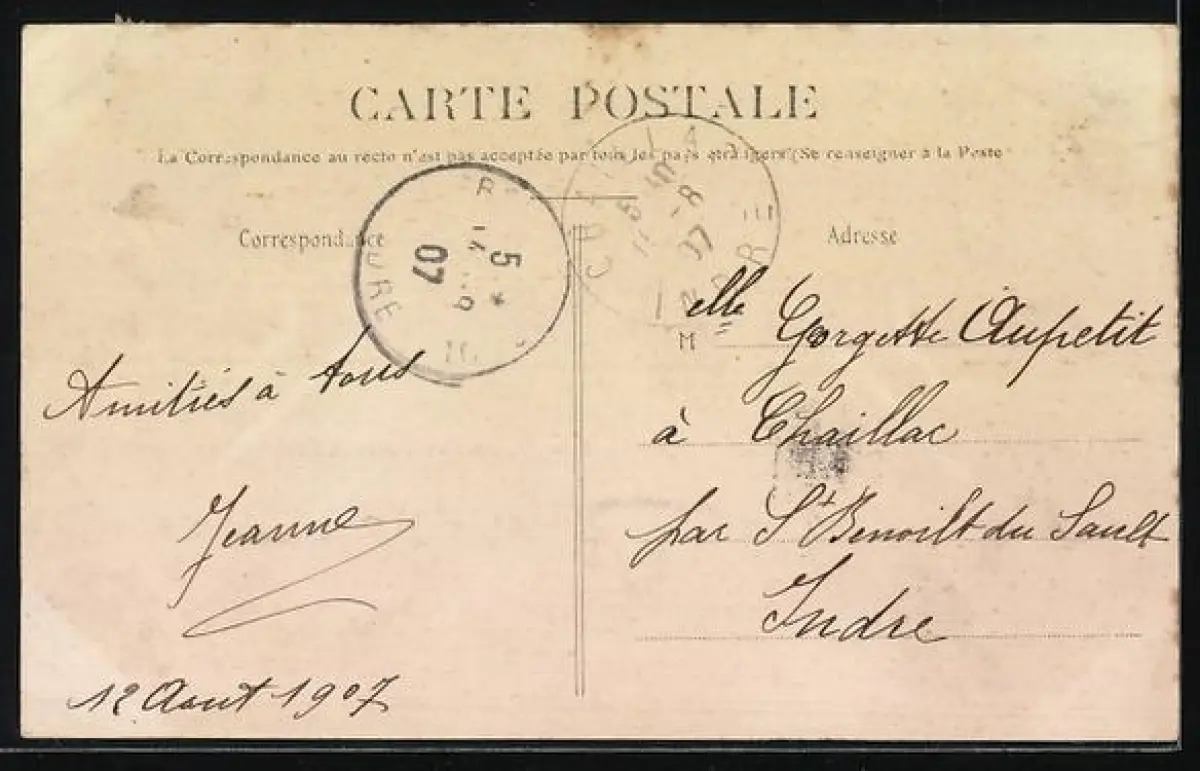 CARTE POSTALE
La Correspondance au recto n'est pas acceptée par tous les pays étrangers (Se renseigner à la Poste
Correspondance
Adresse
Amitiés à tous
Jeanne
12 Aout 1907
M elle Gorgette Aupetit
à Chaillac
par St Benoilt du Sault
Indre
5
07
8
07
INDRE